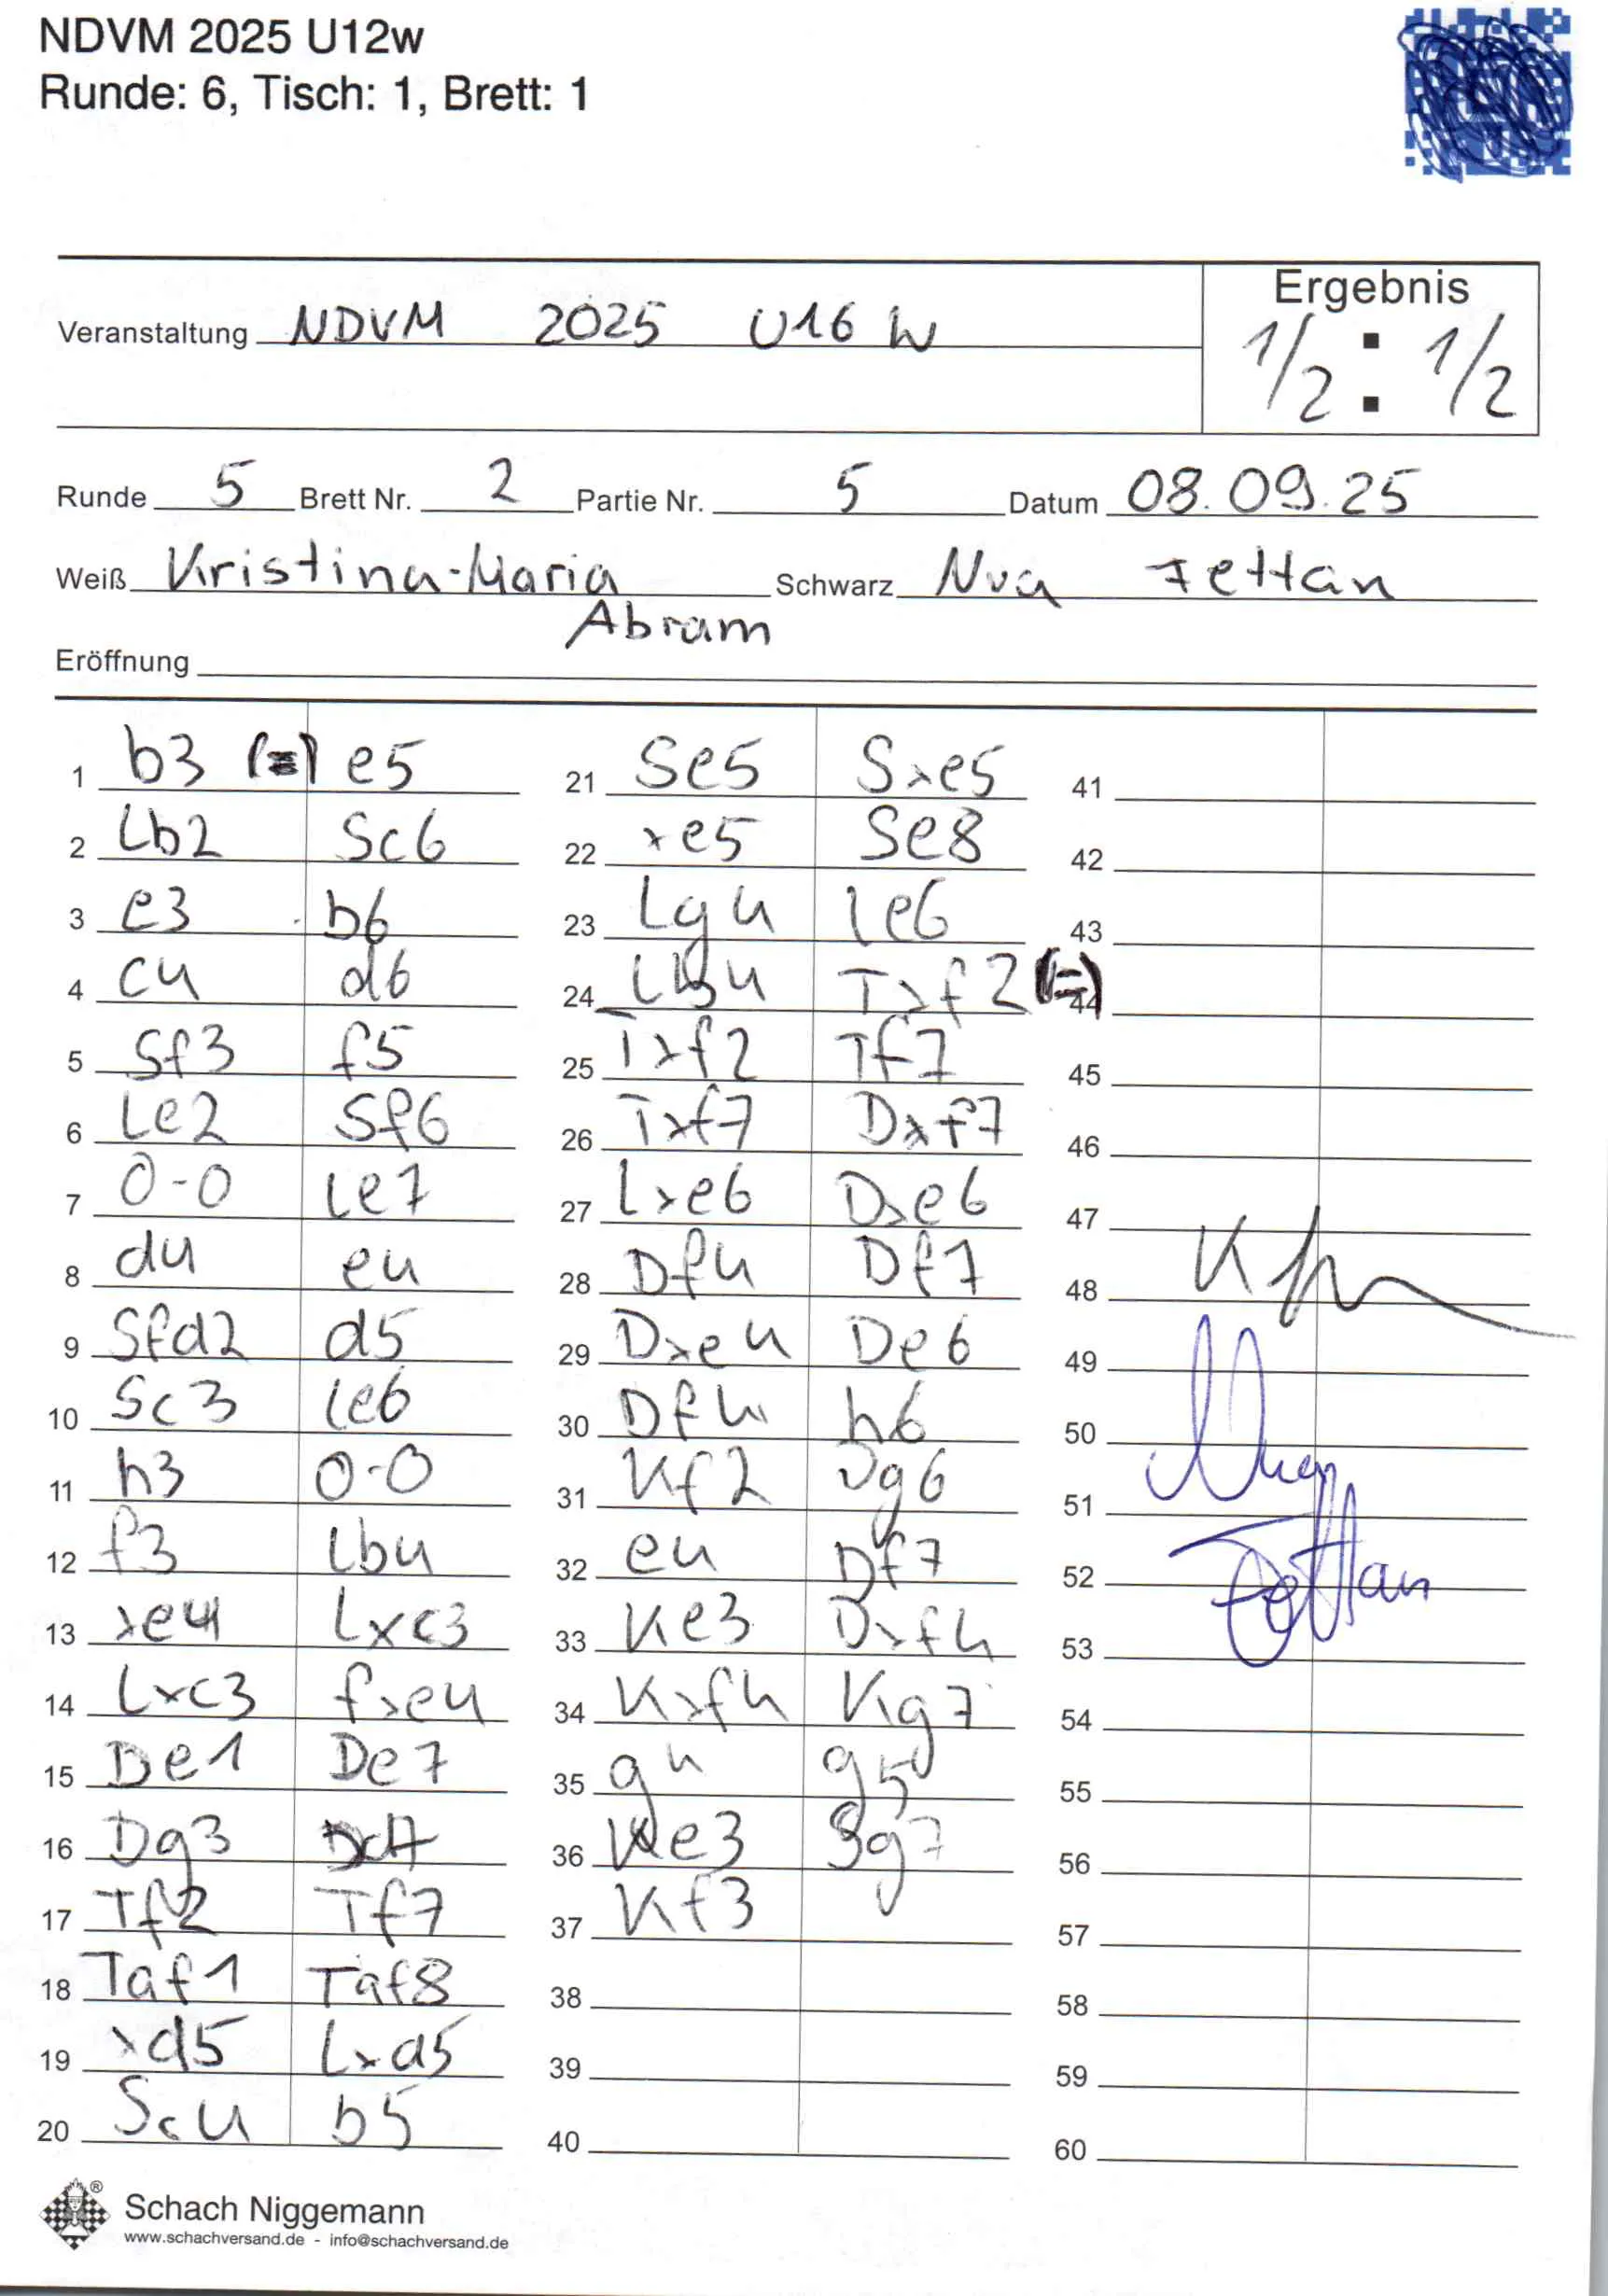 NDVM 2025 U12w
Runde: 6, Tisch: 1, Brett: 1
Ergebnis
Veranstaltung NDVM 2025 U16 W
1/2 : 1/2
Runde 5 Brett Nr. 2 Partie Nr. 5 Datum 08.09.25
Weiß Kristina-Maria Schwarz Nva Fettan
Abram
Eröffnung
1 b3 (=) e5
2 Lb2 Sc6
3 e3 b6
4 c4 d6
5 Sf3 f5
6 Le2 Sf6
7 0-0 Le7
8 d4 e4
9 Sfd2 d5
10 Sc3 Le6
11 h3 0-0
12 f3 Lb4
13 xe4 Lxc3
14 Lxc3 fxe4
15 De1 De7
16 Dg3 Dd7
17 Tf2 Tf7
18 Taf1 Taf8
19 xd5 Lxd5
20 Sc4 b5
21 Se5 Sxe5
22 xe5 Se8
23 Lg4 Le6
24 Lb4 Txf2 (=)
25 Txf2 Tf7
26 Txf7 Dxf7
27 Lxe6 Dxe6
28 Df4 Df7
29 Dxe4 De6
30 Df4 h6
31 Kf2 Dg6
32 e4 Df7
33 Ke3 Dxf4
34 Kxf4 Kg7
35 g4 g5
36 Ke3 Sg7
37 Kf3
38
39
40
41
42
43
44
45
46
47
48
49
50
51
52 Fettan
53
54
55
56
57
58
59
60
®
Schach Niggemann
www.schachversand.de - info@schachversand.de